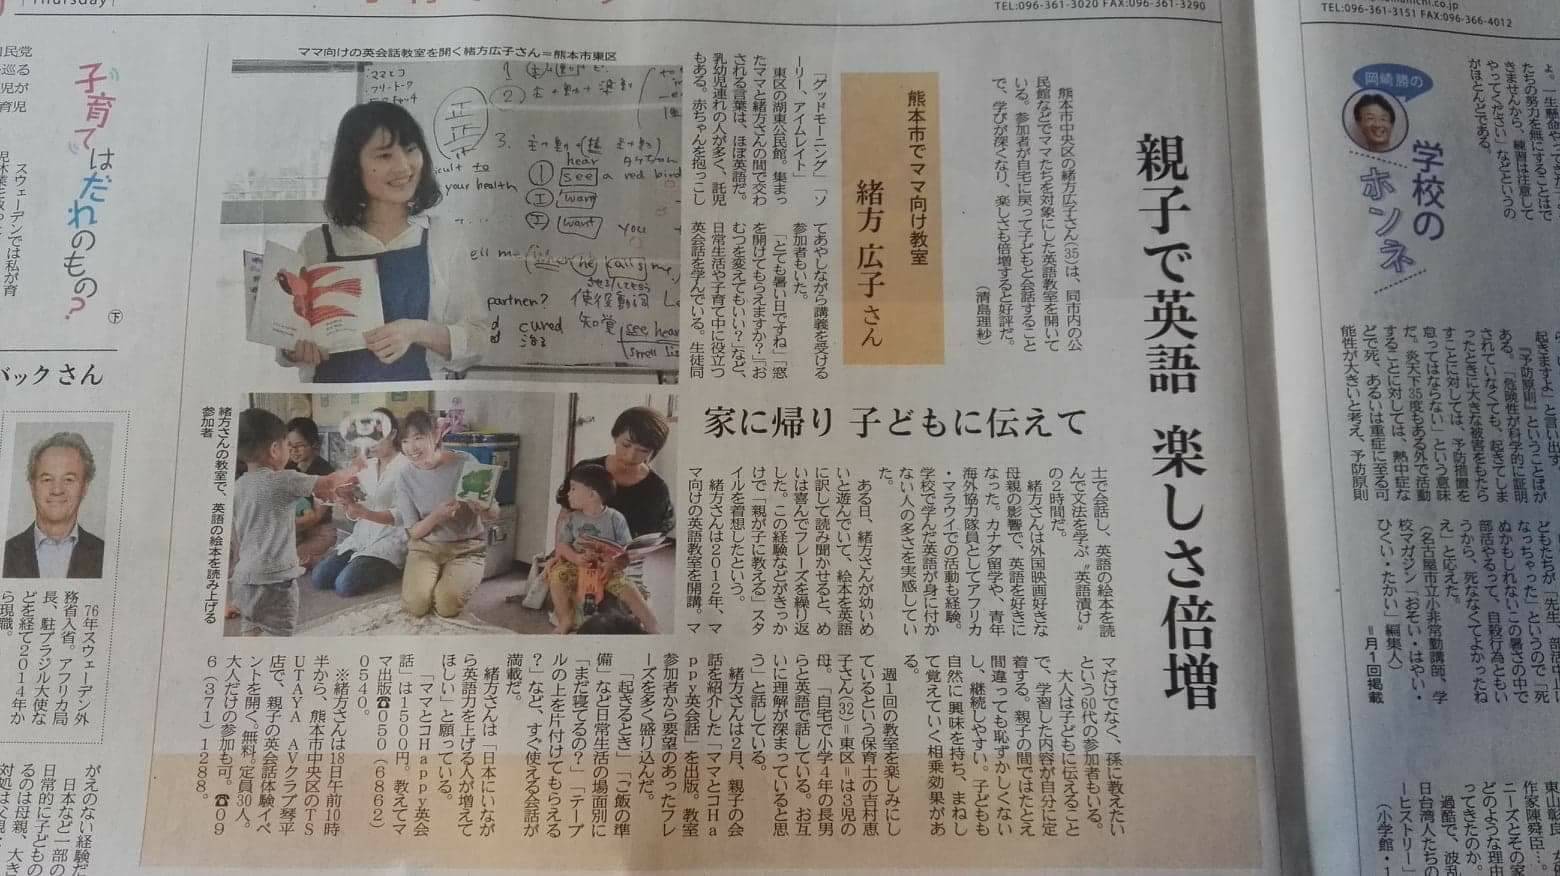 TEL:096-361-3020 FAX:096-361-3290
TEL:096-361-3151 FAX:096-366-4012
親子で英語 楽しさ倍増
熊本市でママ向け教室
緒方 広子さん
家に帰り 子どもに伝えて
熊本市中央区の緒方広子さん(35)は、同市内の公
民館などでママたちを対象にした英語教室を開いて
いる。参加者が自宅に戻って子どもと会話すること
で、学びが深くなり、楽しさも倍増すると好評だ。
(清島理紗)
「グッドモーニング」「ソ
ーリー、アイムレイト」
東区の湖東公民館。集まっ
たママと緒方さんの間で交わ
される言葉は、ほぼ英語だ。
乳幼児連れの人が多く、託児
もある。赤ちゃんを抱っこし
てあやしながら講義を受ける
参加者もいた。
「とても暑い日ですね」「窓
を開けてもらえますか?」「お
むつを変えてもいい?」など、
日常生活や子育て中に役立つ
英会話を学んでいる。生徒同
士で会話し、英語の絵本を読
んで文法を学ぶ“英語漬け”
の2時間だ。
緒方さんは外国映画好きな
母親の影響で、英語を好きに
なった。カナダ留学や、青年
海外協力隊員としてアフリカ
・マラウイでの活動も経験。
学校で学んだ英語が身に付か
ない人の多さを実感してい
た。
ある日、緒方さんが幼いめ
いと遊んでいて、絵本を英語
に訳して読み聞かせると、め
いは喜んでフレーズを繰り返
した。この経験などがきっか
けで「親が子に教える」スタ
イルを着想したという。
緒方さんは2012年、マ
マ向けの英語教室を開講。マ
マだけでなく、孫に教えたい
という60代の参加者もいる。
大人は子どもに伝えること
で、学習した内容が自分に定
着する。親子の間ではたとえ
間違っても恥ずかしくない
し、継続しやすい。子どもも
自然に興味を持ち、まねし
て覚えていく相乗効果があ
る。
週1回の教室を楽しみにし
ているという保育士の吉村恵
子さん(32)=東区=は3児の
母。「自宅で小学4年の長男
らと英語で話している。お互
いに理解が深まっていると思
う」と話している。
緒方さんは2月、親子の会
話を紹介した「ママとコHa
ppy英会話」を出版。教室
参加者から要望のあったフレ
ーズを多く盛り込んだ。
「起きるとき」「ご飯の準
備」など日常生活の場面別に
「まだ寝てるの?」「テーブ
ルの上を片付けてもらえる
?」など、すぐ使える会話が
満載だ。
緒方さんは「日本にいなが
ら英語力を上げる人が増えて
ほしい」と願っている。
「ママとコHappy英会
話」は1500円。教えてマ
マ出版☎050(6862)
0540。
※緒方さんは18日午前10時
半から、熊本市中央区のTS
UTAYA AVクラブ琴平
店で、親子の英会話体験イベ
ントを開く。無料。定員30人。
大人だけの参加も可。☎09
6(371)1288。
ママ向けの英会話教室を開く緒方広子さん=熊本市東区
緒方さんの教室で、英語の絵本を読み上げる
参加者
ママとコ
フリートーク
hear
see a red bird
want
want you
your health
partner? 使役動詞
cured 知覚 see hear
治る
岡崎勝の
学校の
ホンネ
よ。一生懸命やって
たちの努力を無にすることはで
きませんから、練習は注意して
やってください」などというの
がほとんどである。
起きますよ」と言い出す。
『予防原則』ということばが
ある。「危険性が科学的に証明
されていなくても、起きてしま
ったときに大きな被害をもたら
すことに対しては、予防措置を
怠ってはならない」という意味
だ。炎天下35度もある外で活動
することに対しては、熱中症な
どで死、あるいは重症に至る可
能性が大きいと考え、予防原則
どもたちが「先生、部活中止に
なっちゃった」というので「死
ぬかもしれないこの暑さの中で
部活やるって、自殺行為ともい
うから、死ななくてよかったね
え」と応えた。
(名古屋市立小非常勤講師、学
校マガジン「おそい・はやい・
ひくい・たかい」編集人)
=月1回掲載
子育てはだれのもの? 下
スウェーデンでは私が育
バックさん
76年スウェーデン外
務省入省。アフリカ局
長、駐ブラジル大使な
どを経て2014年か
ら現職。
がえのない経験だ
日本など一部の
日常的に子どもの
るのは母親、大き
対処は父親
作家陳舜臣…。
ニーズとその家
どのような理由
ってきたのか。
過酷で、波乱
日台湾人たちの
ーヒストリー」
(小学館・1